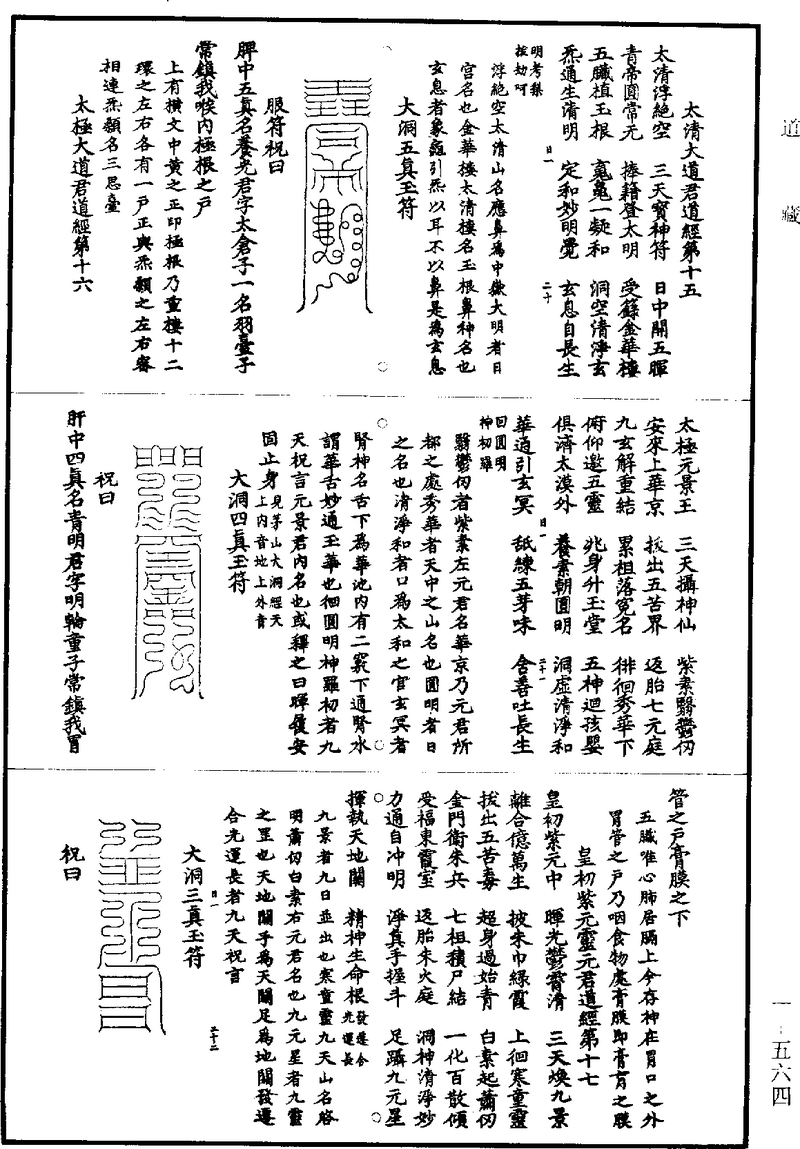 道藏
太清大道君道經第十五
太清浮絕空　三天寶神符　日中開五暉
青帝圓常元　捧籍登太明　受籙金華樓
五臟植玉根　竅竈一凝和　洞空清淨玄
炁通生清明　定和妙明覺　玄息自長生
明考梨
按劫呵
浮絕空太清山名應鼻為中嶽大明者日
宮名也金華樓太清樓名玉根鼻神名也
玄息者象龜引炁以耳不以鼻是為玄息
大洞五真玉符
服符祝曰
脾中五真名養光君字太倉子一名羽臺子
常鎮我喉內極根之戶
上有橫文中黃之正印極根乃重樓十二
環之左右各有一戶正與炁顙之左右審
相連炁顙名三思臺
太極大道君道經第十六
太極元景王　三天攝神仙　紫素翳鬱仞
安來上華京　拔出五苦界　返胎七元庭
九玄解重結　累祖落冤名　徘徊秀華下
俯仰邀五靈　兆身升玉堂　五神迴孩嬰
俱濟太漠外　養素朝圓明　洞虛清淨和
華通引玄冥　舐練五芽味　含善吐長生
回圓明
神初羅
翳鬱仞者紫素左元君名華京乃元君所
都之處秀華者天中之山名也圓明者日
之名也清淨和者口為太和之官玄冥者
腎神名舌下為華池內有二竅下通腎水
謂華舌妙通玉華也徊圓明神羅初者九
天祝言元景君內名也或釋之曰暉僾安
固止身見茅山大洞經天
上內音地上外音
大洞四真玉符
祝曰
肝中四真名青明君字明輪童子常鎮我胃
管之戶膏膜之下
五臟唯心肺居膈上今存神在胃口之外
胃管之戶乃咽食物處膏膜即膏肓之膜
皇初紫元靈元君道經第十七
皇初紫元中　暉光鬱霄清　三天煥九景
離合億萬生　披朱巾綠霞　上徊寒童靈
拔出五苦毒　超身過始青　白素起蕭仞
金門衛朱兵　七祖積尸結　一化百散傾
受福東霞室　返胎朱火庭　洞神清淨妙
力通自冲明　淨真手握斗　足躡九元星
揮執天地關　精神生命根發遷合
光運長
九景者九日並出也寒童靈九天山名格
明蕭仞白素右元君名也九元星者九靈
之罡也天地關手為天關足為地關發遷
合光運長者九天祝言
大洞三真玉符
祝曰
一·五六四